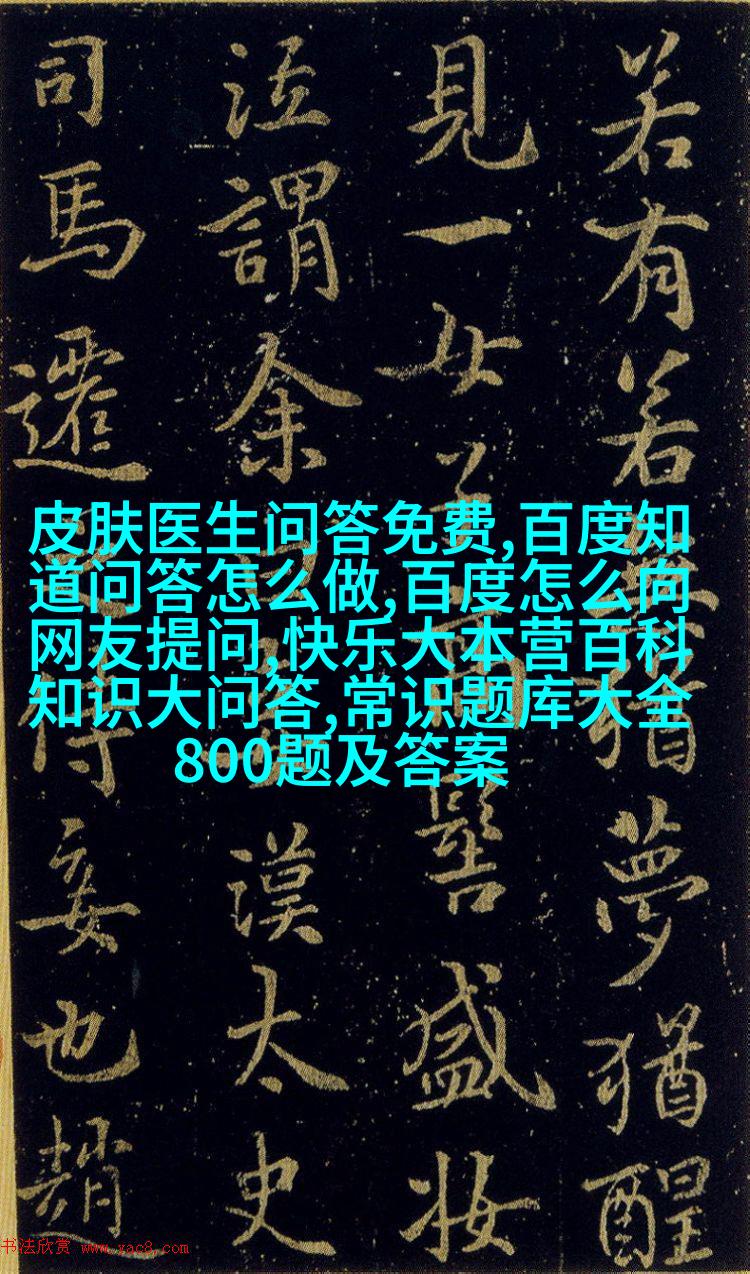 若有若猶夢猶醒
見一女子高髻盛妝
泣謂余漢太史
司馬遷侍妾也趙
皮肤医生问答免费,百度知
道问答怎么做,百度怎么向
网友提问,快乐大本营百科
知识大问答,常识题库大全
800题及答案
书法欣赏 www.yac8.com